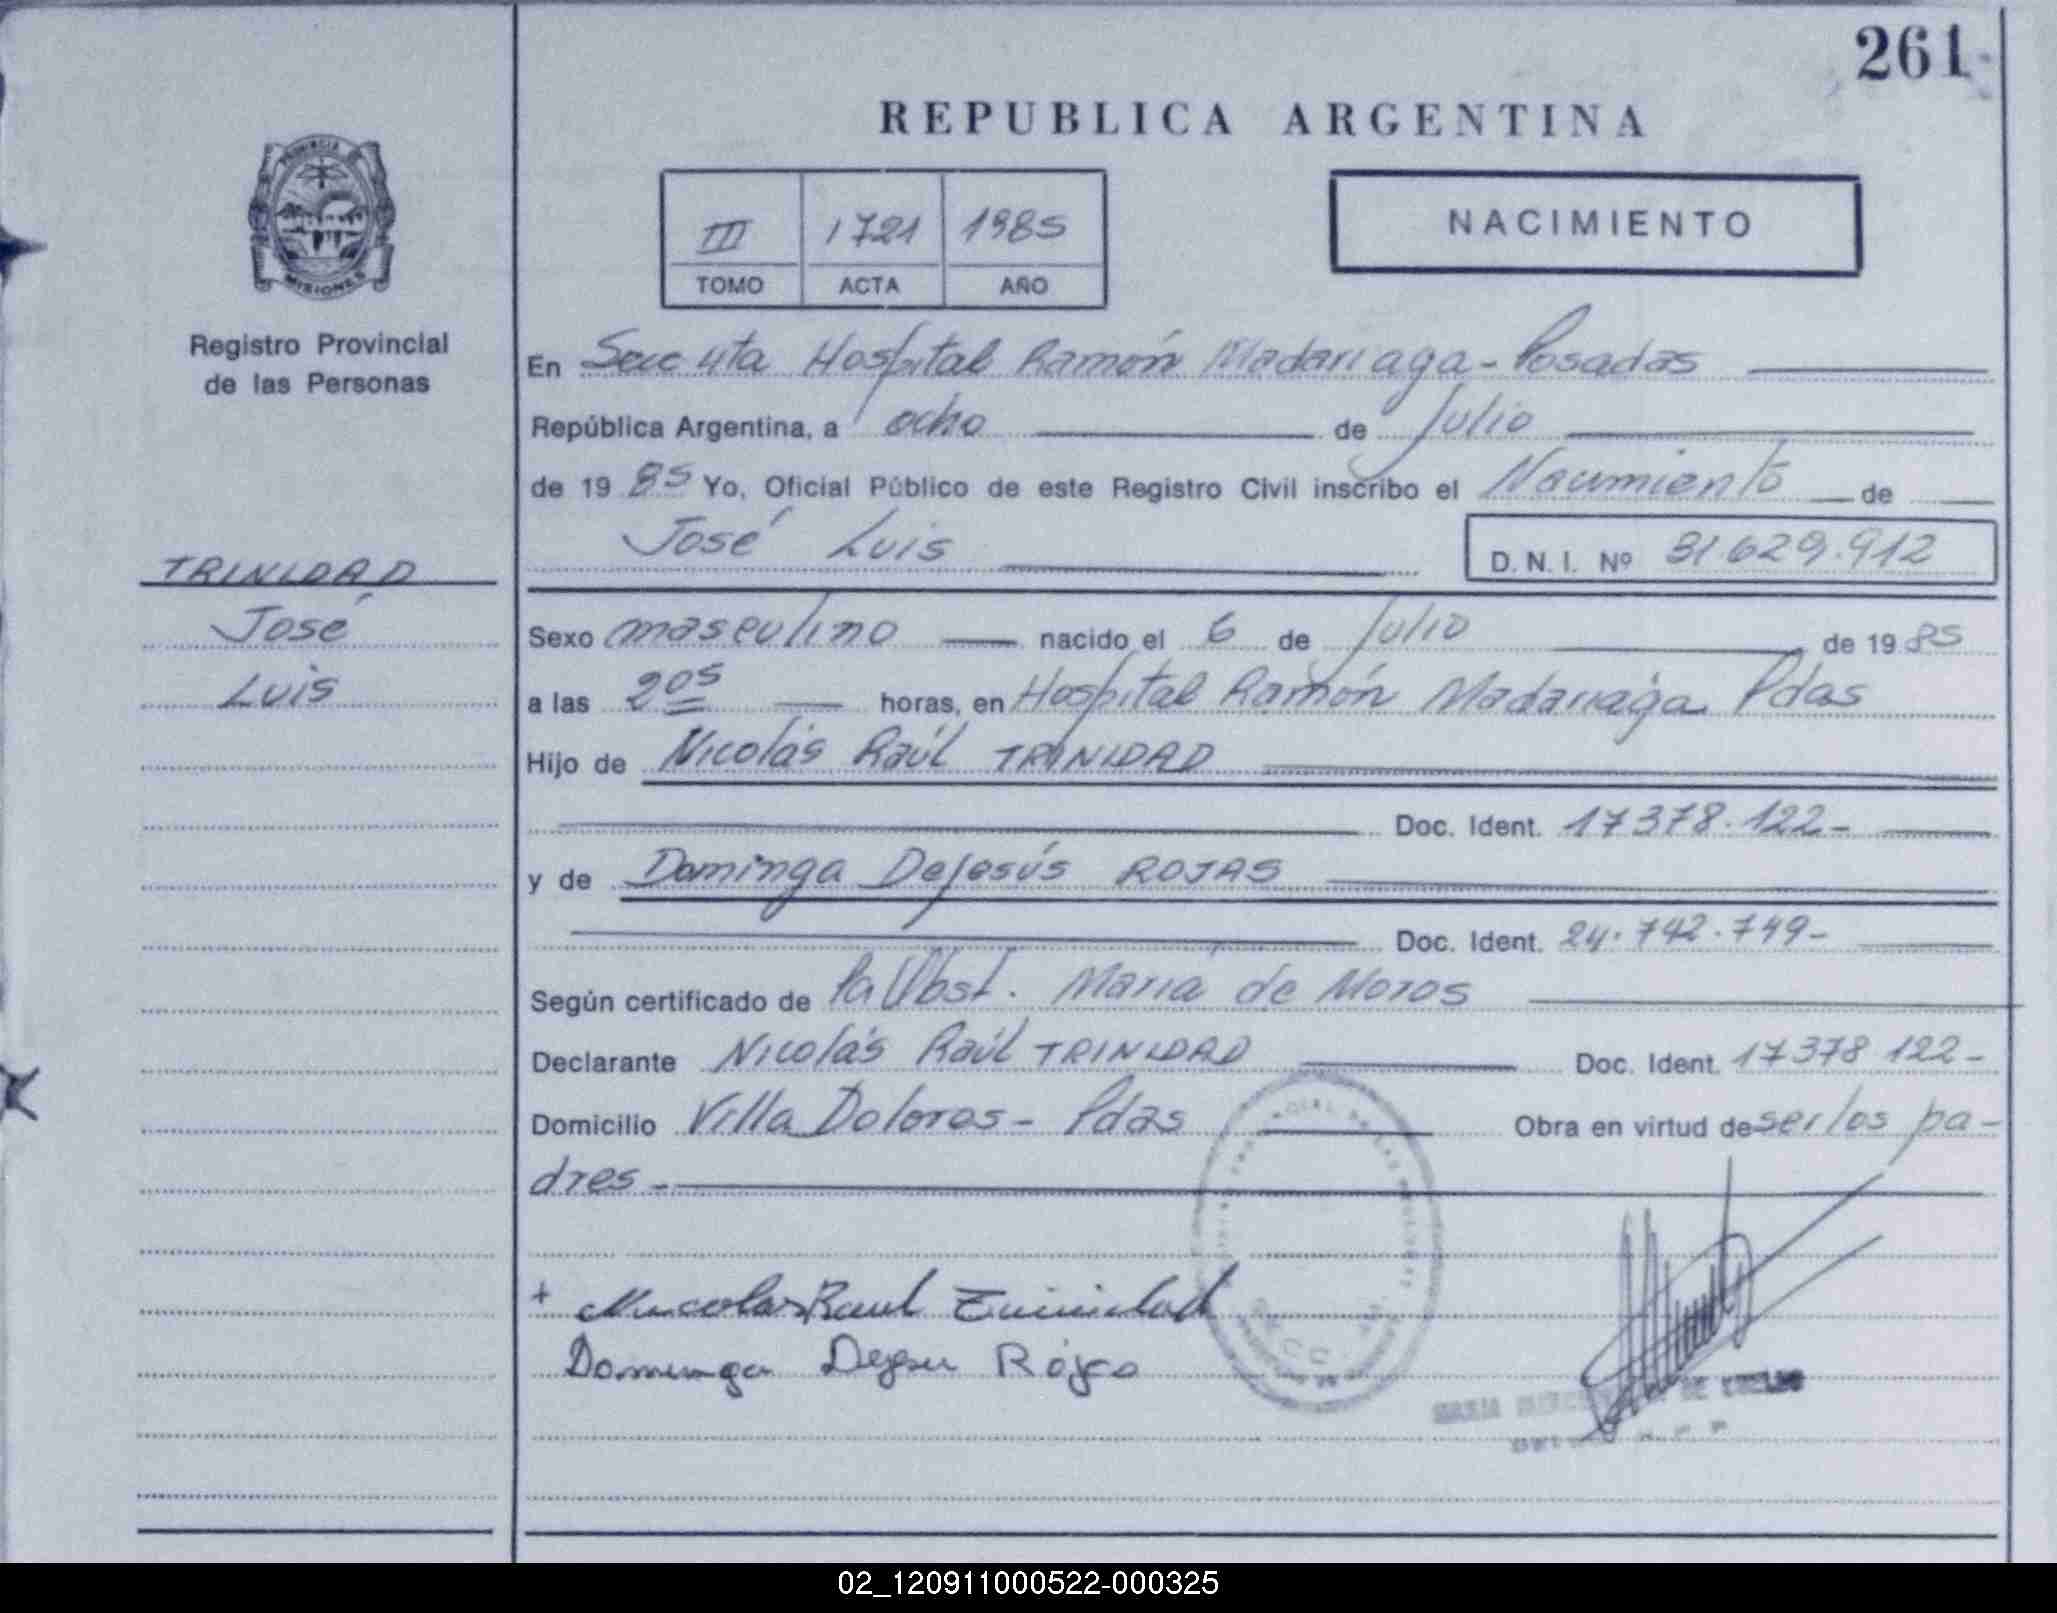 261
REPUBLICA ARGENTINA
PROVINCIA DE
MISIONES
III 1721 1985
TOMO ACTA AÑO
NACIMIENTO
Registro Provincial
de las Personas
En Secc 4ta Hospital Ramón Madariaga - Posadas
República Argentina, a ocho de Julio
de 19 85 Yo, Oficial Público de este Registro Civil inscribo el Nacimiento de
José Luis D. N. I. Nº 31.629.912
TRINIDAD
José
Luis
Sexo masculino nacido el 6 de Julio de 19 85
a las 2 05 horas, en Hospital Ramón Madariaga Pdas
Hijo de Nicolás Raúl TRINIDAD
Doc. Ident. 17378.122-
y de Dominga Dejesús ROJAS
Doc. Ident. 24.742.749-
Según certificado de la Obst. María de Moros
Declarante Nicolás Raúl TRINIDAD Doc. Ident. 17378 122-
Domicilio Villa Dolores - Pdas Obra en virtud de ser los pa-
dres -
+ Nicolas Raul Trinidad
Dominga Dejesu Rojas
MARIA DE
02_120911000522-000325